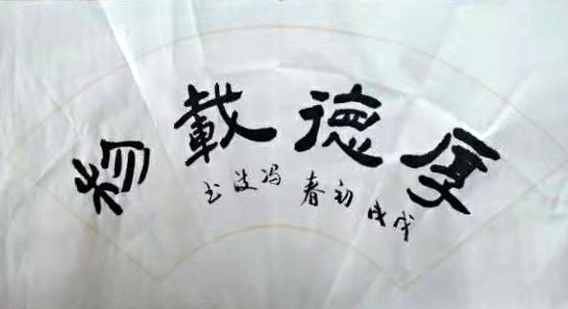 厚德載物
戊戌初春冯波书